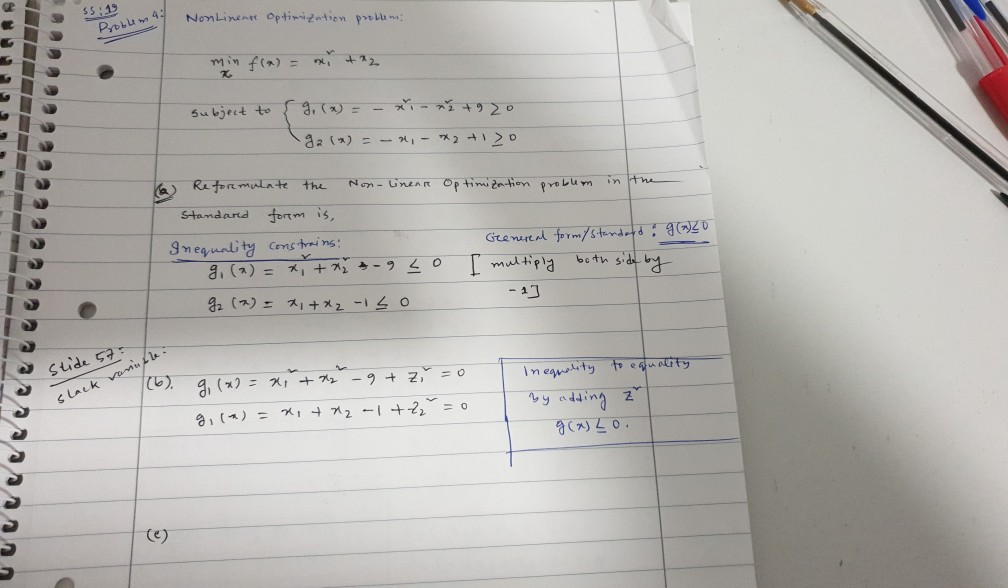 SS:19
Problem 4: NonLinear Optimization problem:
min f(x) = x₁² + x₂
x
subject to { g₁(x) = - x₁² - x₂² + 9 ≥ 0
g₂(x) = - x₁ - x₂ + 1 ≥ 0
(a) Reformulate the Non-Linear Optimization problem in the
standard form is,
Inequality constrains: General form/standard: g(x) ≤ 0
g₁(x) = x₁² + x₂² - 9 ≤ 0 [multiply both side by
g₂(x) = x₁ + x₂ - 1 ≤ 0 -1]
Slide 57:
slack variable:
(b). g₁(x) = x₁² + x₂² - 9 + z₁² = 0
g₁(x) = x₁ + x₂ - 1 + z₂² = 0
Inequality to equality
by adding z²
g(x) ≤ 0.
(c)